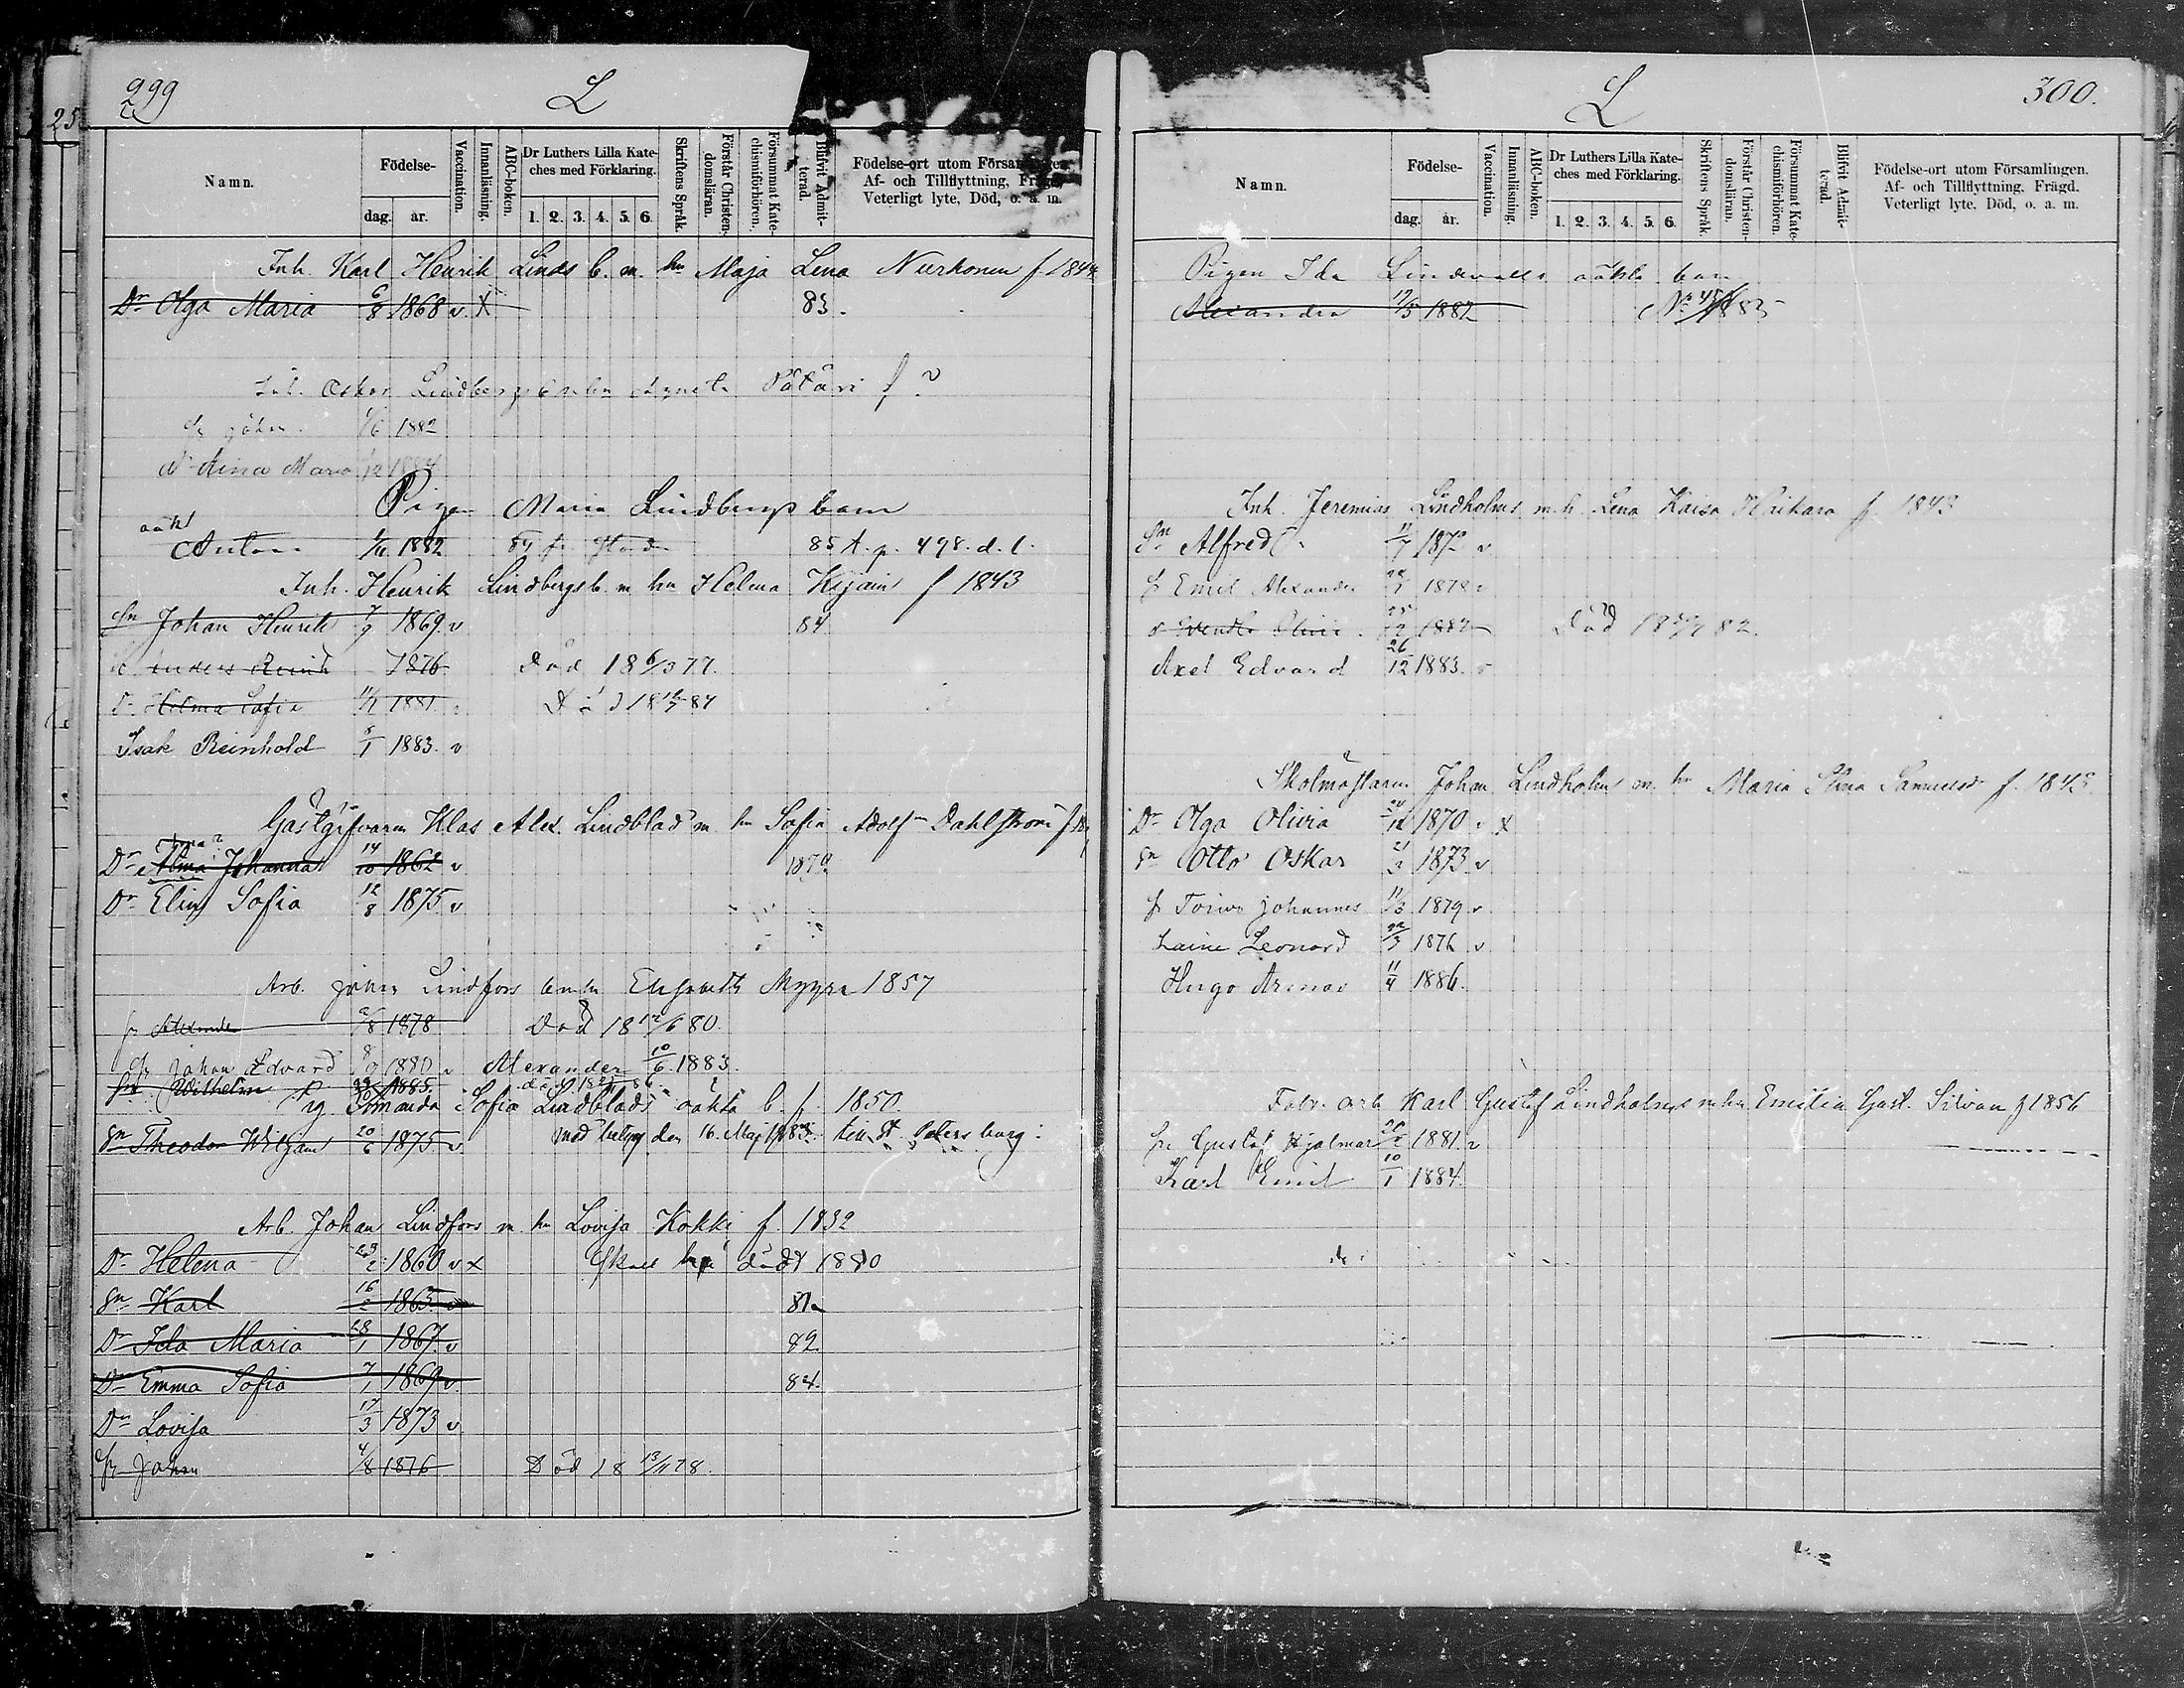 299
L
25
Namn.
Födelse-
dag. år.
Vaccination.
Innanläsning.
ABC-boken.
Dr Luthers Lilla Kate-
ches med Förklaring.
1. 2. 3. 4. 5. 6.
Skriftens Språk.
Förstår Christen-
domsläran.
Försummat Kate-
chismiförhören.
Blifvit Admit-
terad.
Födelse-ort utom Församlingen.
Af- och Tillflyttning, Frägd.
Veterligt lyte, Död, o. a. m.
Inh. Karl Henrik Linds b. m. hu Maja Lena Nurhonen f 1844
Dr Olga Maria 6/8 1868 v. X 83.
Inh. Oskar Lindbergs b m hu Agneta f ?
Sn Johan 1882
Dr Aina Maria 1884
Pigan Maria Lindbergs barn
oäkt
Anton 1882 85 A. p. 498. d. l.
Inh. Henrik Lindbergs b. m hu Helena f 1843
Sn Johan Henrik 7/9 1869 v 84
1876 Död 18 6/3 77.
Dr Hilma Sofia 1881 Död 84
Isak Reinhold 5/1 1883. v
Gästgifvaren Klas Alex. Lindblad m hu Sofia Adolf Dahlström
Dr Alma Johanna 14/10 1862 v 1879
Dr Elin Sofia 12/8 1875. v
Arb. Johan Lindfors b m hu Elisabeth Myyrä 1857
Sn Alexander 1878 Död 18 12/6 80.
Sn Johan Edvard 8/9 1880 v Alexander 10/6 1883.
Sn Wilhelm 1885. död 86.
Pig. Amanda Sofia Lindblads oäkta b. f. 1850.
Sn Theodor Wiljam 20/6 1875 v med betyg den 16. Maj 1883. till St. Petersburg.
Arb. Johan Lindfors m. hu Lovisa Kokki f. 1832
Dr Helena 29/2 1860 v x Skall ha dödt 1880
Sn Karl 16/2 1865. v 81
Dr Ida Maria 28/1 1867. v 82.
Dr Emma Sofia 7/1 1869 v. 84.
Dr Lovisa 17/3 1873 v
Sn Johan 4/8 1876 Död 18 13/11 78.
L
300.
Namn.
Födelse-
dag. år.
Vaccination.
Innanläsning.
ABC-boken.
Dr Luthers Lilla Kate-
ches med Förklaring.
1. 2. 3. 4. 5. 6.
Skriftens Språk.
Förstår Christen-
domsläran.
Försummat Kate-
chismiförhören.
Blifvit Admit-
terad.
Födelse-ort utom Församlingen.
Af- och Tillflyttning, Frägd.
Veterligt lyte, Död, o. a. m.
Pigan Ida Lindevalls oäkta barn
Alexandra 17/5 1882
Inh. Jeremias Lindholms m. h. Lena Kaisa f 1843
Sn Alfred 11/7 1872 v
S Emil Alexander 1878 v
1882 Död 82.
Axel Edvard 26/12 1883. v
Skolmästaren Johan Lindholm m. hu Maria Stina Samuelsdr f. 1843
Dr Olga Olivia 24/12 1870 v x
Sn Otto Oskar 21/3 1873 v
S Toivo Johannes 11/3 1879 v
Laine Leonard 22/3 1876 v
Hugo Armas 11/4 1886.
Fabr. arb Karl Gustaf Lindholms m hu Emilia Gust. Silvan f 1856
Sn Gustaf Hjalmar 1881. v
Karl Emil 10/1 1884.